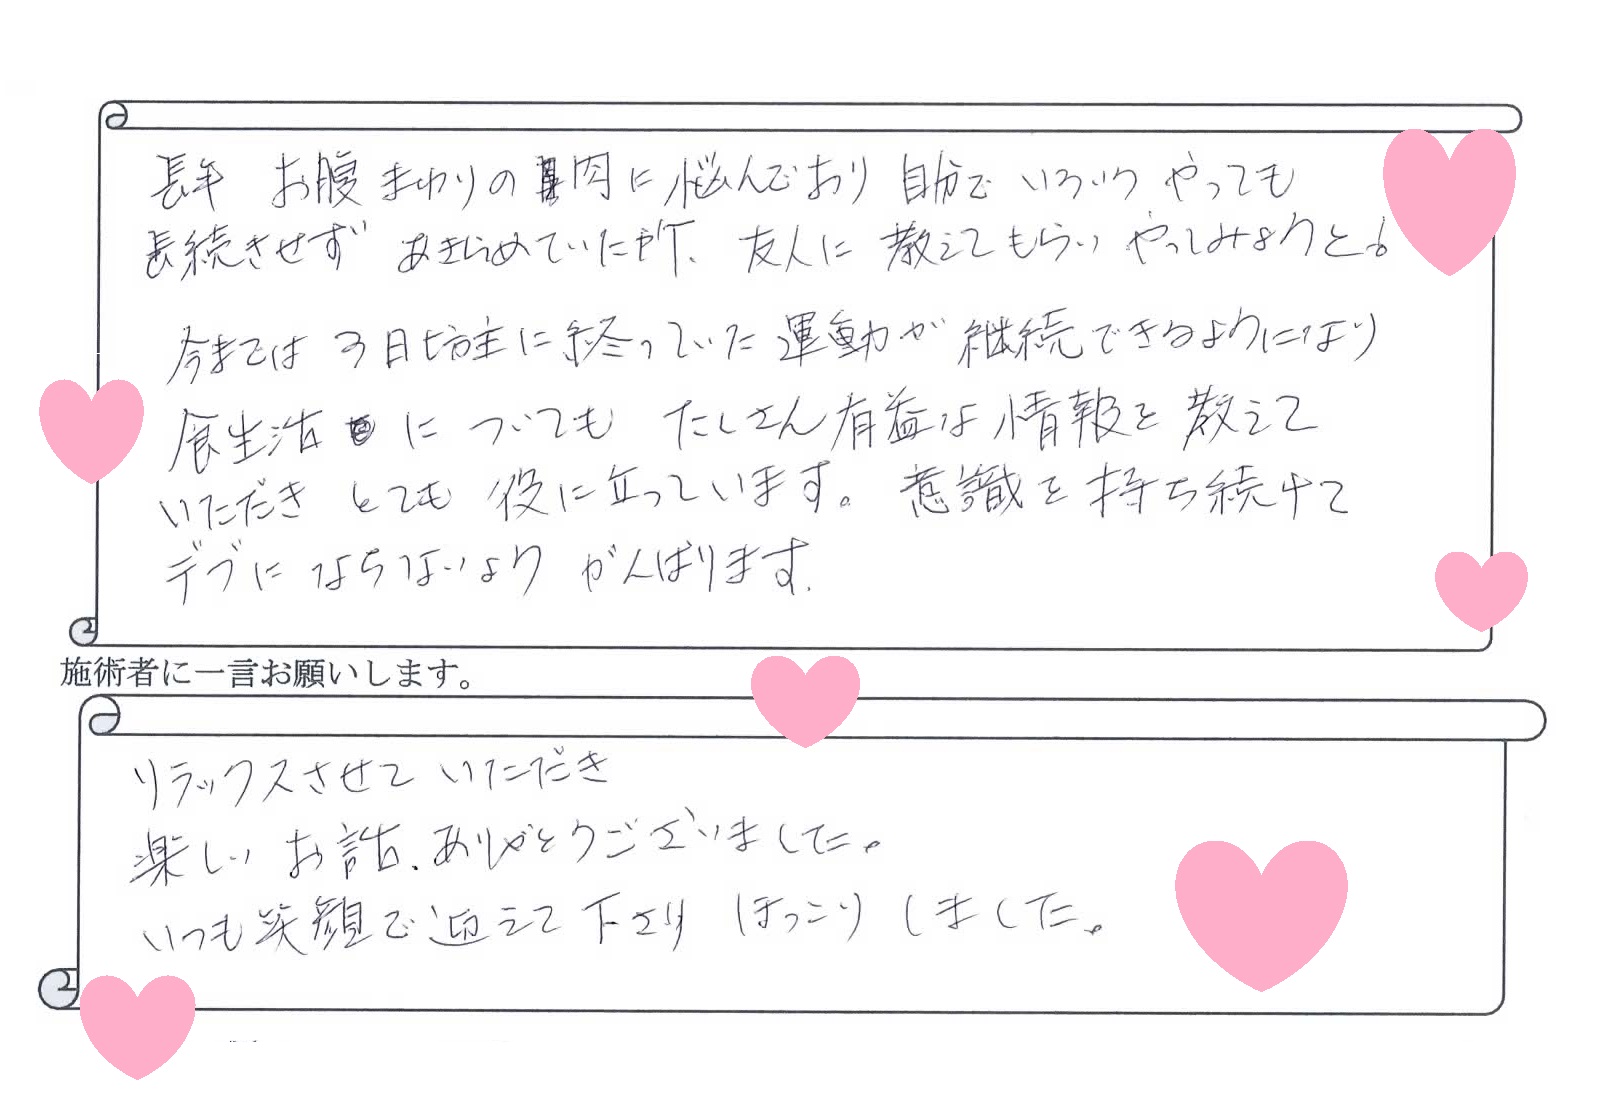 長年 お腹まわりの肉に悩んでおり 自分で いろいろ やっても
長続きせず あきらめていた所、友人に 教えてもらい やってみようと。
今までは 3日坊主に終っていた 運動が 継続できるようになり
食生活 に ついても たくさん有益な情報を 教えて
いただき とても 役に立っています。意識を持ち続けて
デブに ならないよう がんばります。
施術者に一言お願いします。
リラックスさせて いただき
楽しい お話、ありがとうございました。
いつも笑顔で迎えて下さり ほっこり しました。